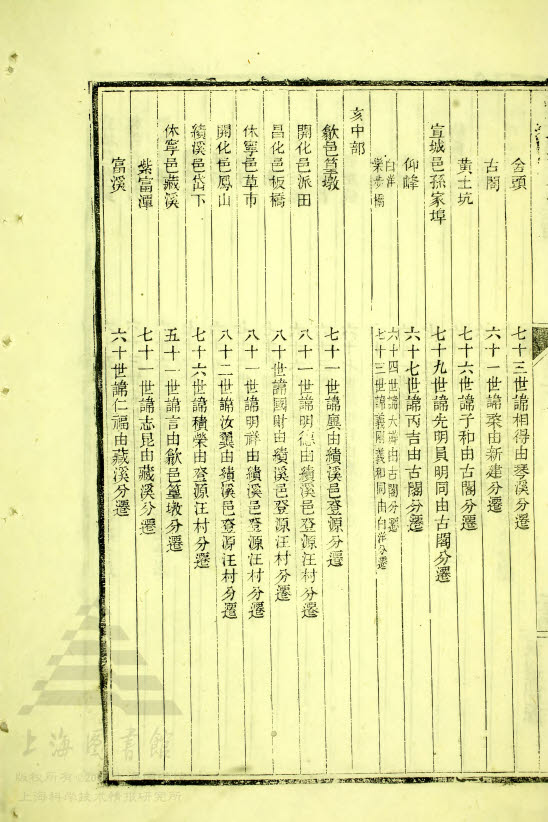 舍頭　七十三世諱相得由琴溪分遷
古閣　六十一世諱榮由新建分遷
黃土坑　七十六世諱子和由古閣分遷
宣城邑孫家埠　七十九世諱先明員明同由古閣分遷
仰峰　六十七世諱丙吉由古閣分遷
白洋　六十四世諱大海由古閣分遷
七十三世諱義剛義和同由白洋分遷
亥中部
歙邑篁墩　七十一世諱由績溪邑登源分遷
開化邑派田　八十一世諱明德由績溪邑登源汪村分遷
昌化邑板橋　八十世諱國財由績溪邑登源汪村分遷
休寧邑草市　八十一世諱明祥由績溪邑登源汪村分遷
開化邑鳳山　八十二世諱汝龔由績溪邑登源汪村分遷
績溪邑岱下　七十六世諱積榮由登源汪村分遷
休寧邑藏溪　五十一世諱言由歙邑篁墩分遷
紫富潭　七十一世諱志昆由藏溪分遷
富溪　六十世諱仁福由藏溪分遷
上海圖書館
版权所有©20
上海科学技术情报研究所